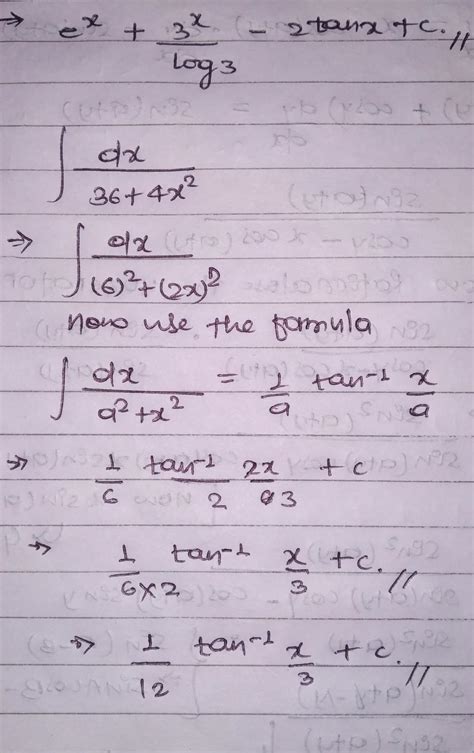 → eˣ + 3ˣ/log3 - 2tanx + c.//
∫ dx/(36+4x²)
⇒ ∫ dx/((6)²+(2x)²)
now use the formula
∫ dx/(a²+x²) = 1/a tan⁻¹ x/a
⇒ 1/6 tan⁻¹/2 2x/3 + c
⇒ 1/(6×2) tan⁻¹ x/3 + c.//
⇒ 1/12 tan⁻¹ x/3 + c.//